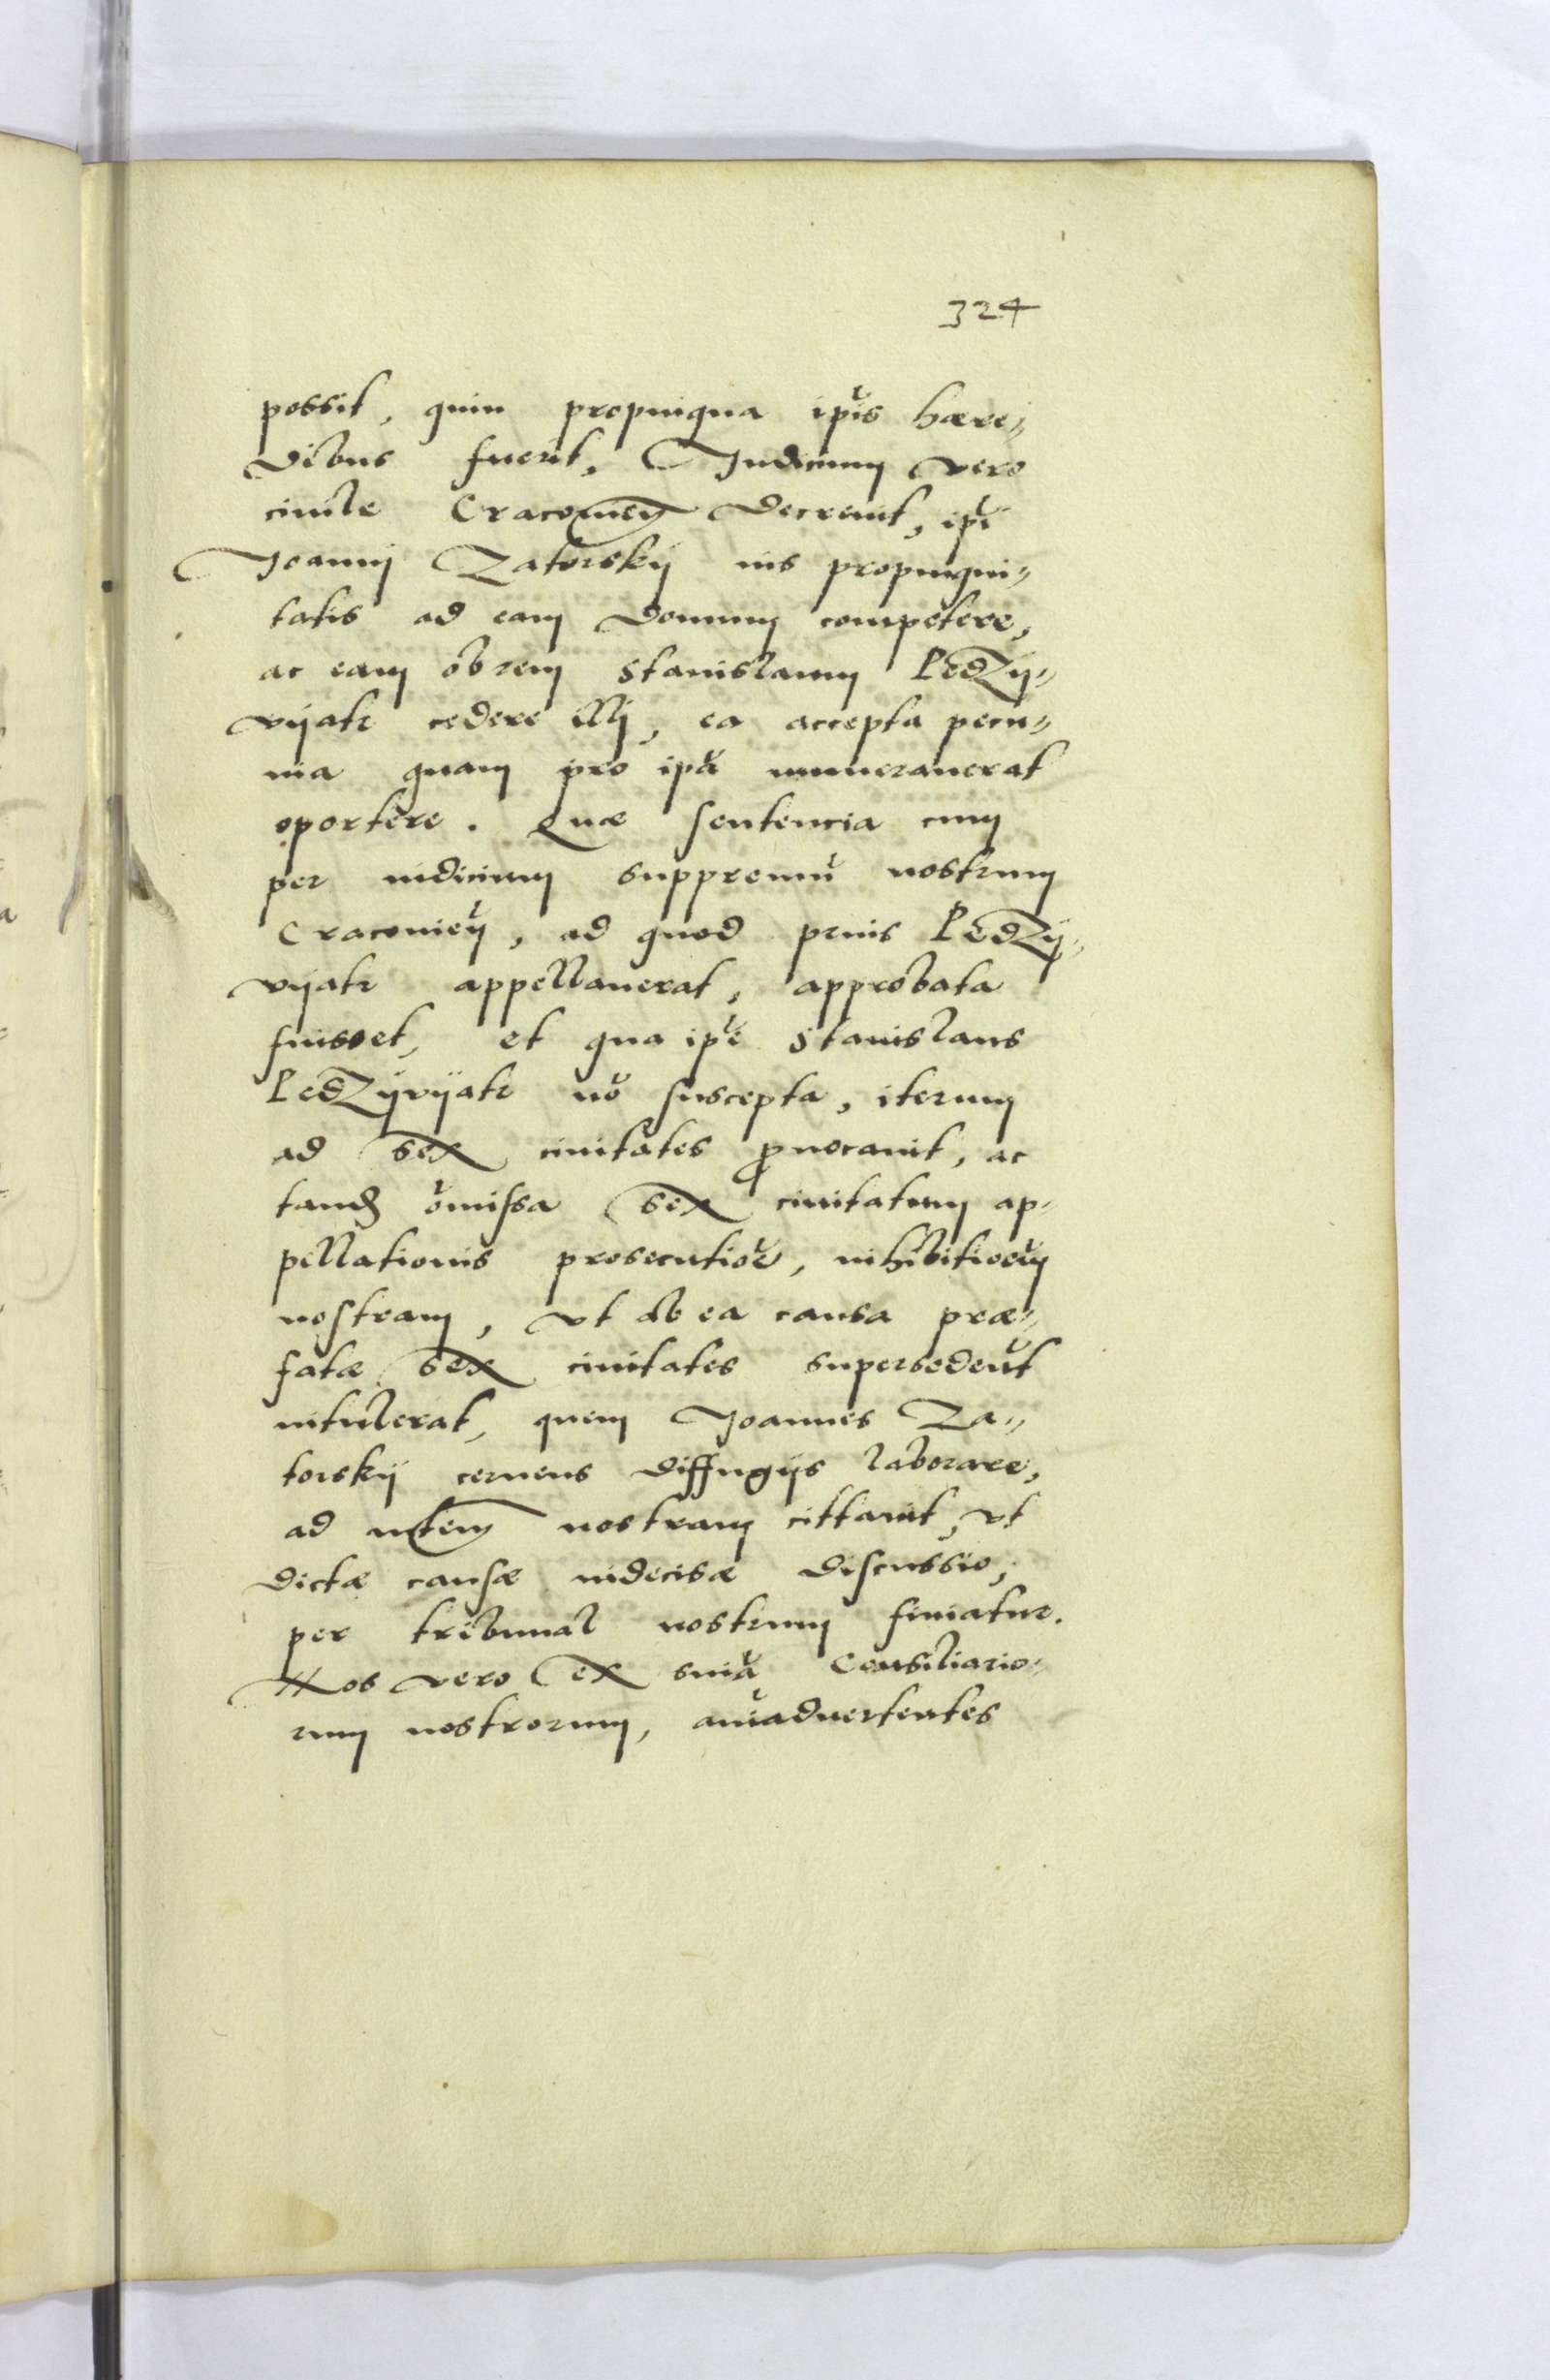 324
possit, quin propinqua ip̃is hære„
dibus fuerit, Iudicium vero
ciuile Cracouien̄ decreuit, ip̃i
Joanni Zatorskij ius propinqui„
tatis ad eam domum competere,
ac eam obrem Stanislaum Pedzy„
vijatr cedere illj, ea accepta pecu„
nia quam pro ip̃a numerauerat
oportere. Quæ sententia cum
per iudicium suppremũ nostrum
Cracouień, ad quod prius Pedzy„
vijatr appellauerat, approbata
fuisset, et qua ip̃e Stanislaus
Pedzyvijatr nõ suscepta, iterum
ad sex ciuitates ꝓuocauit, ac
tandȝ õmissa sex ciuitatum ap„
pellationis prosecutiõe, inhibitioẽm
nostram, vt ab ea causa præ„
fatæ sex ciuitates supersedeñt
intulerat, quem Joannes Za„
torskij cernens diffugijs laborare,
ad mtem̄ nostram cittauit, vt
dictæ causæ indecisæ discussio,
per tribunal nostrum finiatur.
Nos vero ex snĩa Consiliario„
rum nostrorum, aĩaduertentes